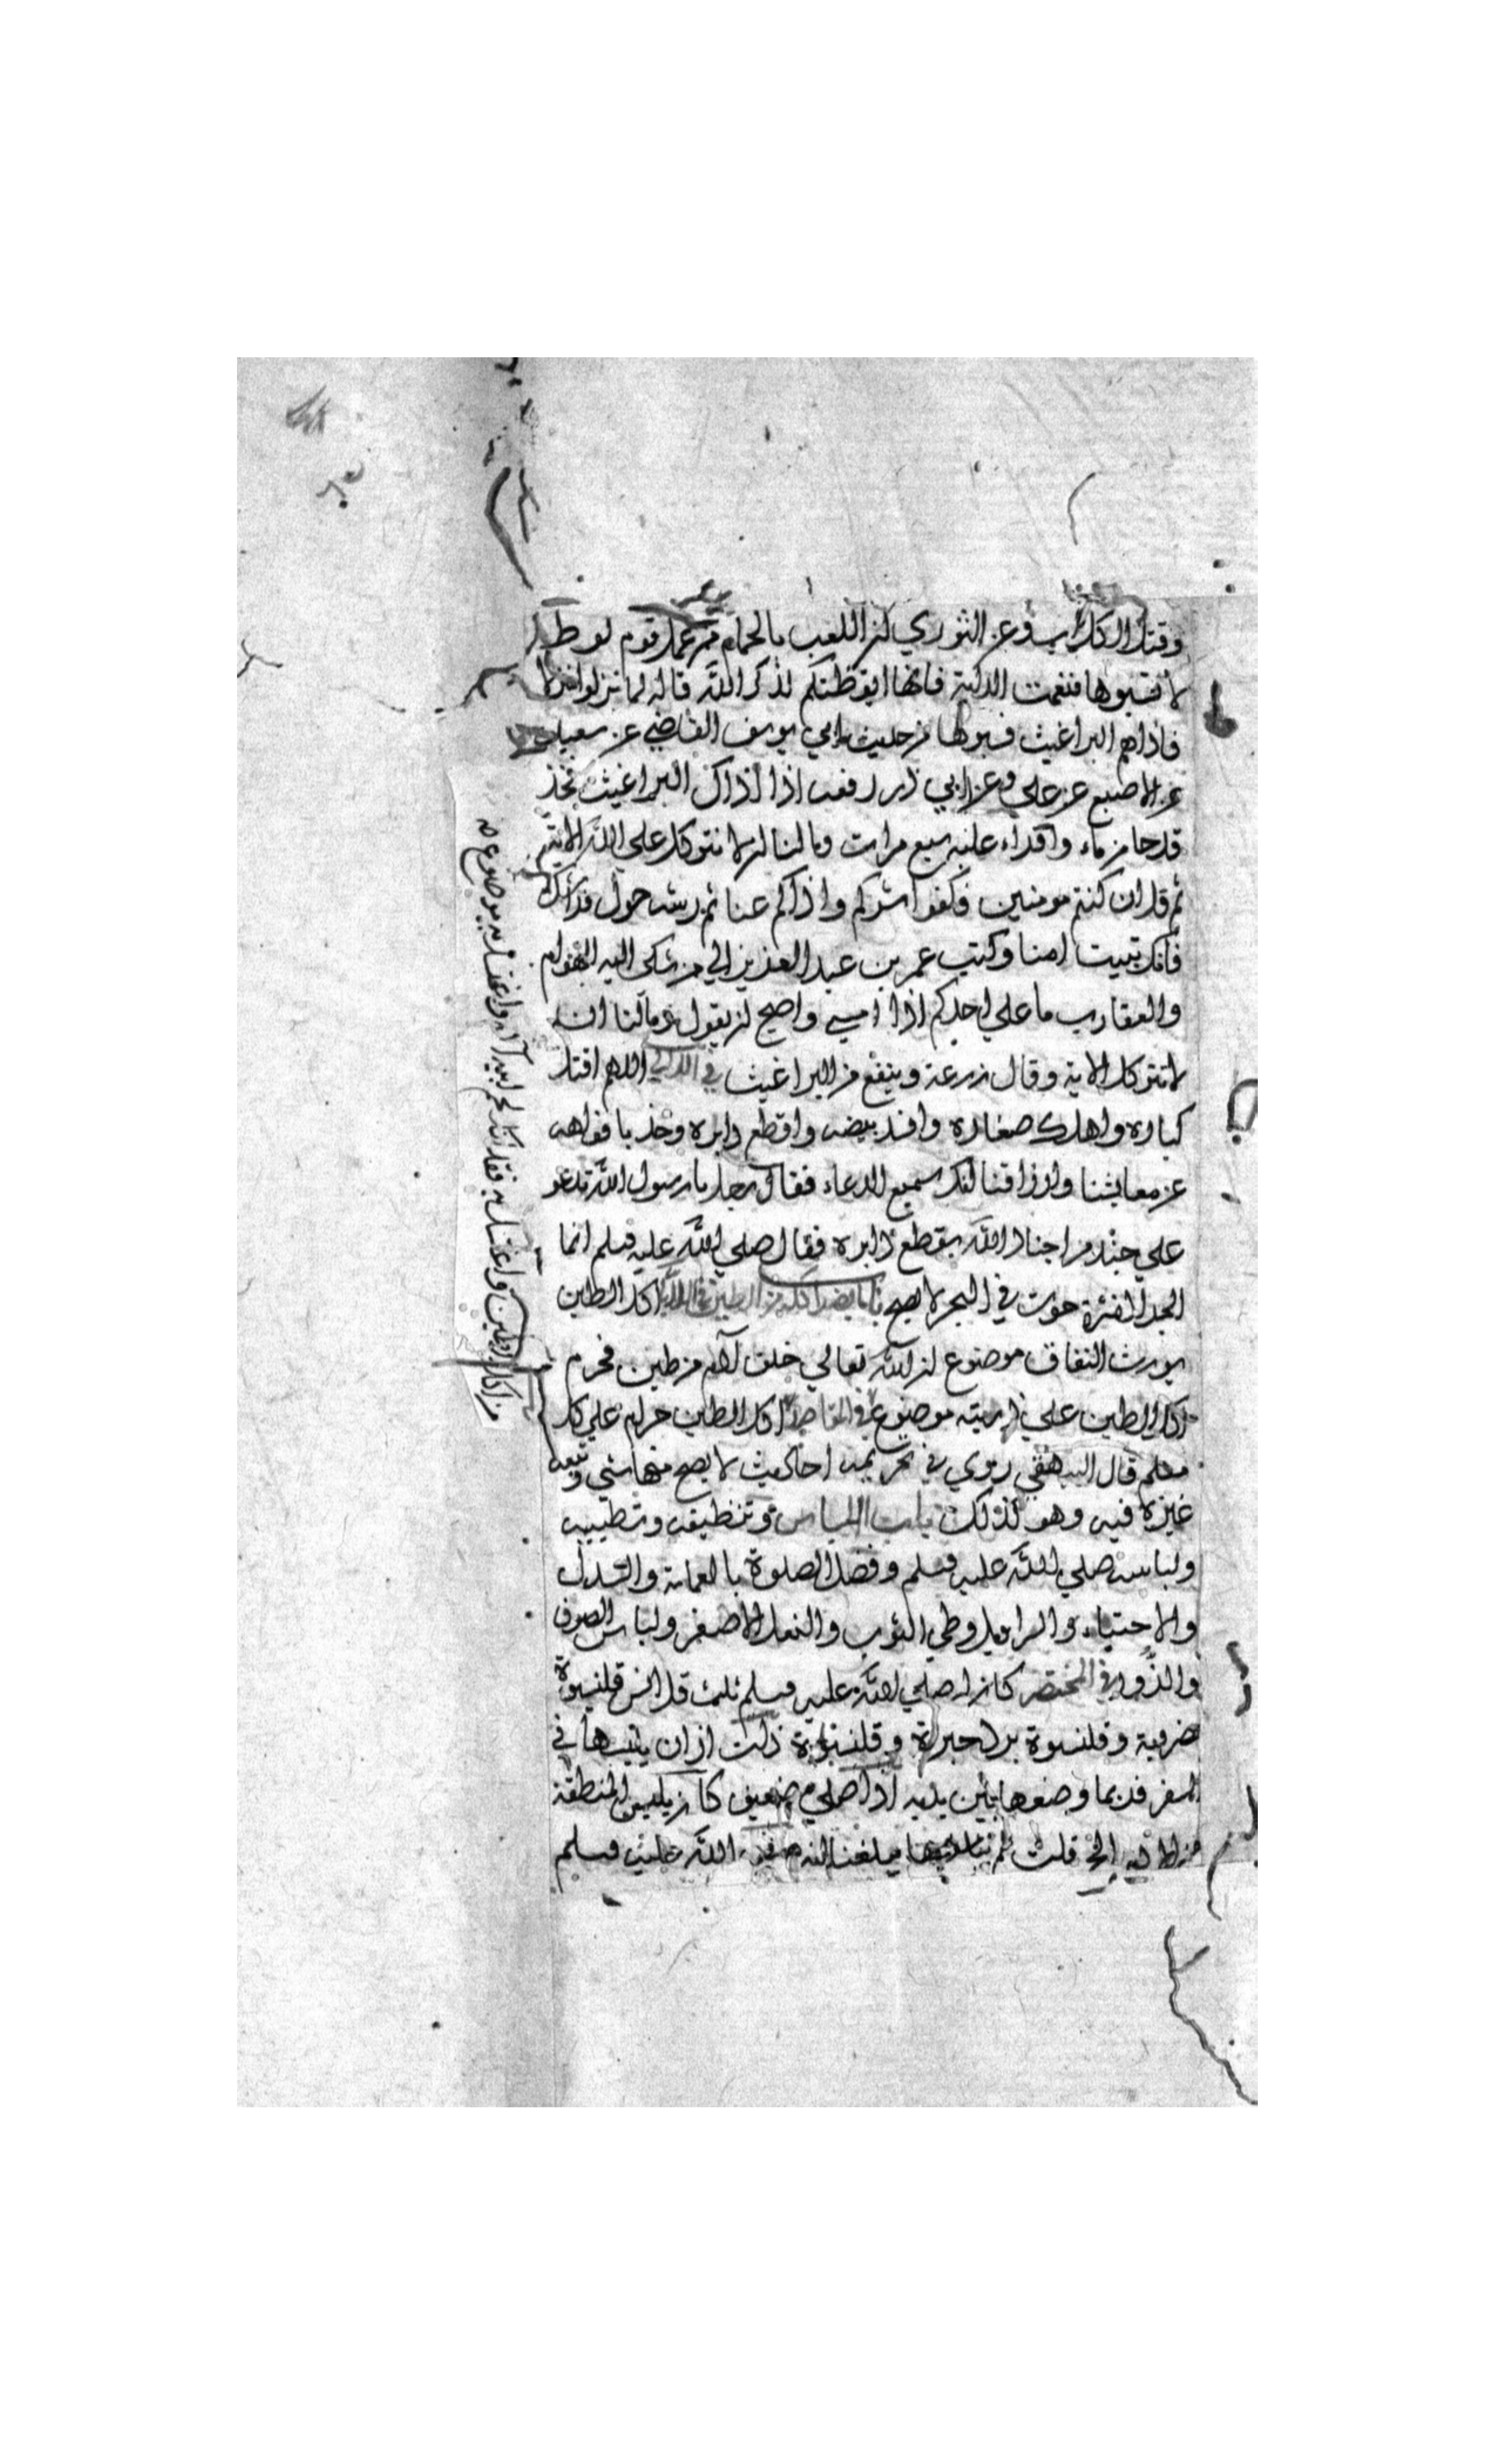 وقتل الكلاب وعن الثوري ان اللعب بالحمام من عمل قوم لوط
لا تسبوها فنعمت الدابة فانها ايقظتكم لذكر الله قاله لما نزلوا منزلا
فاذاهم البراغيث فسبوها من حديث ابي يوسف القاضي عن سعيد
عن الاصبغ عن علي وعن ابي ذر رفعه اذا اذاك البراغيث فخذ
قدحا من ماء واقراء عليه سبع مرات ومالنا ان لا نتوكل على الله الاية
ثم قل ان كنتم مومنين فكفوا شركم واذاكم عنا ثم رشه حول فراشك
فانك تبيت امنا وكتب عمر بن عبد العزيز الي من شكى اليه الهوام
والعقارب ما علي احدكم اذا امسى واصبح ان يقول ومالنا ان
لا نتوكل الاية وقال زرعة وينفع من البراغيث في اللالي اللهم اقتل
كباره واهلك صغاره وافسد بيضه واقطع دابره وخذ بافواهه
عن معايشنا وارزاقنا انك سميع الدعاء فقال رجل يا رسول الله تدعو
علي جند من اجناد الله بقطع دابره فقال صلي الله عليه وسلم انما
الجراد نثرة حوت في البحر لا يصح باب ما يضر اكله من الطين في اللالي اكل الطين
يورث النفاق موضوع ان الله تعالي خلق آدم من طين فحرم
اكل الطين علي ذريته موضوع في المقاصد اكل الطين حرام علي كل
مسلم قال البيهقي روي في تحريمه احاديث لا يصح منها شي وتبعه
غيره فيه وهو كذلك باب اللباس وتنظيفه وتطييبه
ولباسه صلي الله عليه وسلم وفضل الصلوة بالعمامة والسدل
والاحتباء والسراويل وطي الثوب والنعل الاصفر ولباس الصوف
في المختصر كان له صلي الله عليه وسلم ثلث قلانس قلنسوة
مضربة وقلنسوة برد حبرة وقلنسوة ذات اذان يلبسها في
السفر فربما وضعها بين يديه اذا صلي ضعيف كان يلبس المنطقة
من الادم الخ قلت لم يبلغنا انه صلى الله عليه وسلم
من اكل الطين واغتسل به فقد اكل لحم ابيه آدم واغتسل بدمه موضوع صه